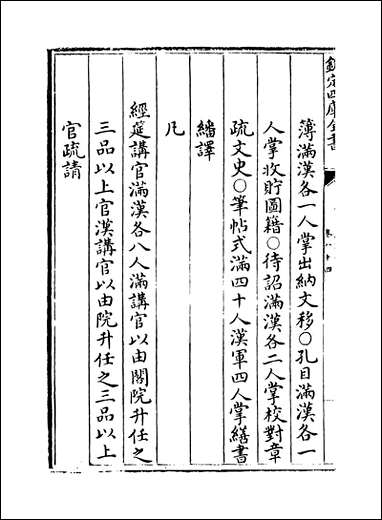 欽定四庫全書
簿滿漢各一人掌出納文移○孔目滿漢各一
人掌收貯圖籍○待詔滿漢各二人掌校對章
疏文史○筆帖式滿四十人漢軍四人掌繕書
繙譯
凡
經筵講官滿漢各八人滿講官以由閣院升任之
三品以上官漢講官以由院升任之三品以上
官疏請